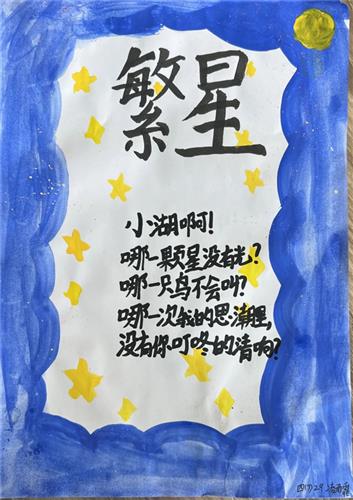 繁星
小湖啊!
哪一颗星没有光?
哪一只鸟不会叫?
哪一次我的思潮里,
没有你叮咚的清响?
四(7)29